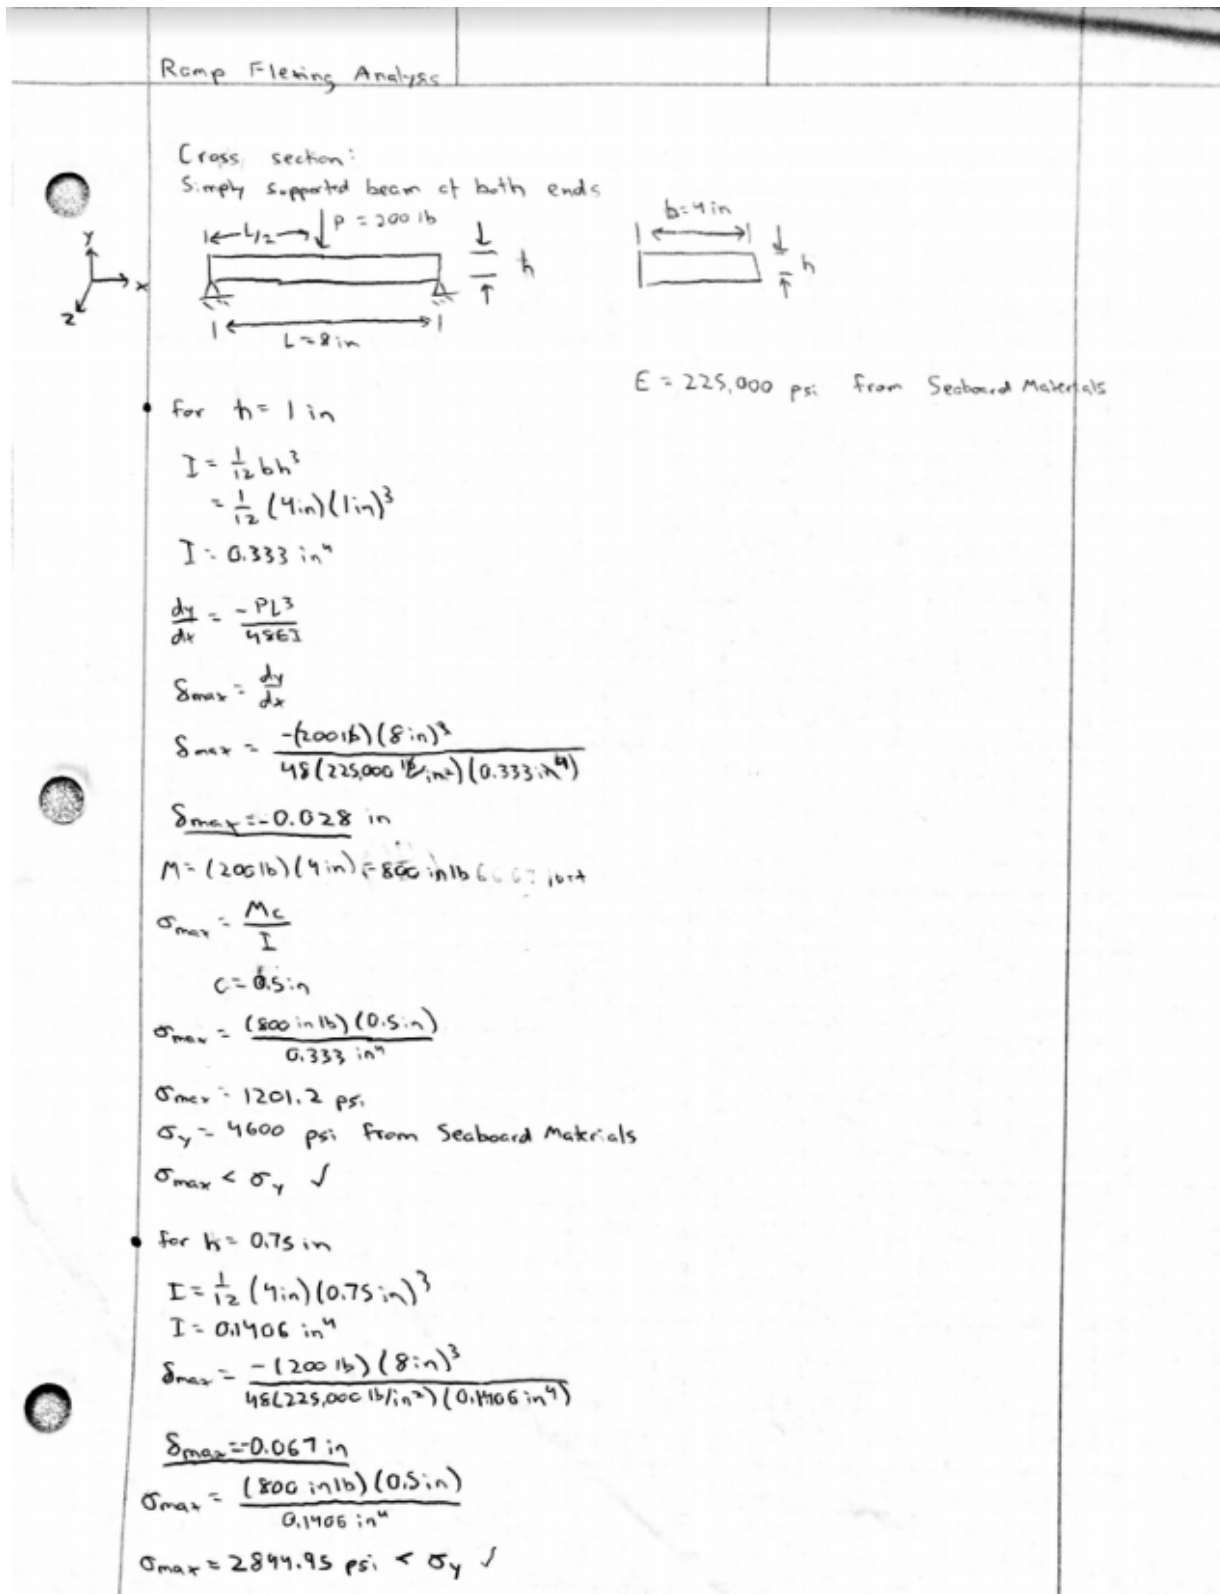 Ramp Flexing Analysis
Cross section:
Simply supported beam at both ends
L/2
P = 200 lb
h
L = 8 in
b = 4 in
h
y
x
z
E = 225,000 psi from Seaboard Materials
• for h = 1 in
I = 1/12 bh³
= 1/12 (4in)(1in)³
I = 0.333 in⁴
dy/dx = -PL³/48EI
δmax = dy/dx
δmax = -(200lb)(8in)³ / 48(225,000 lb/in²)(0.333in⁴)
δmax = -0.028 in
M = (200lb)(4in) = 800 inlb
σmax = Mc/I
c = 0.5in
σmax = (800 in lb)(0.5in) / 0.333 in⁴
σmax = 1201.2 psi
σy = 4600 psi from Seaboard Materials
σmax < σy ✓
• for h = 0.75 in
I = 1/12 (4in)(0.75in)³
I = 0.1406 in⁴
δmax = -(200 lb)(8in)³ / 48(225,000 lb/in²)(0.1406 in⁴)
δmax = -0.067 in
σmax = (800 inlb)(0.5in) / 0.1406 in⁴
σmax = 2844.95 psi < σy ✓